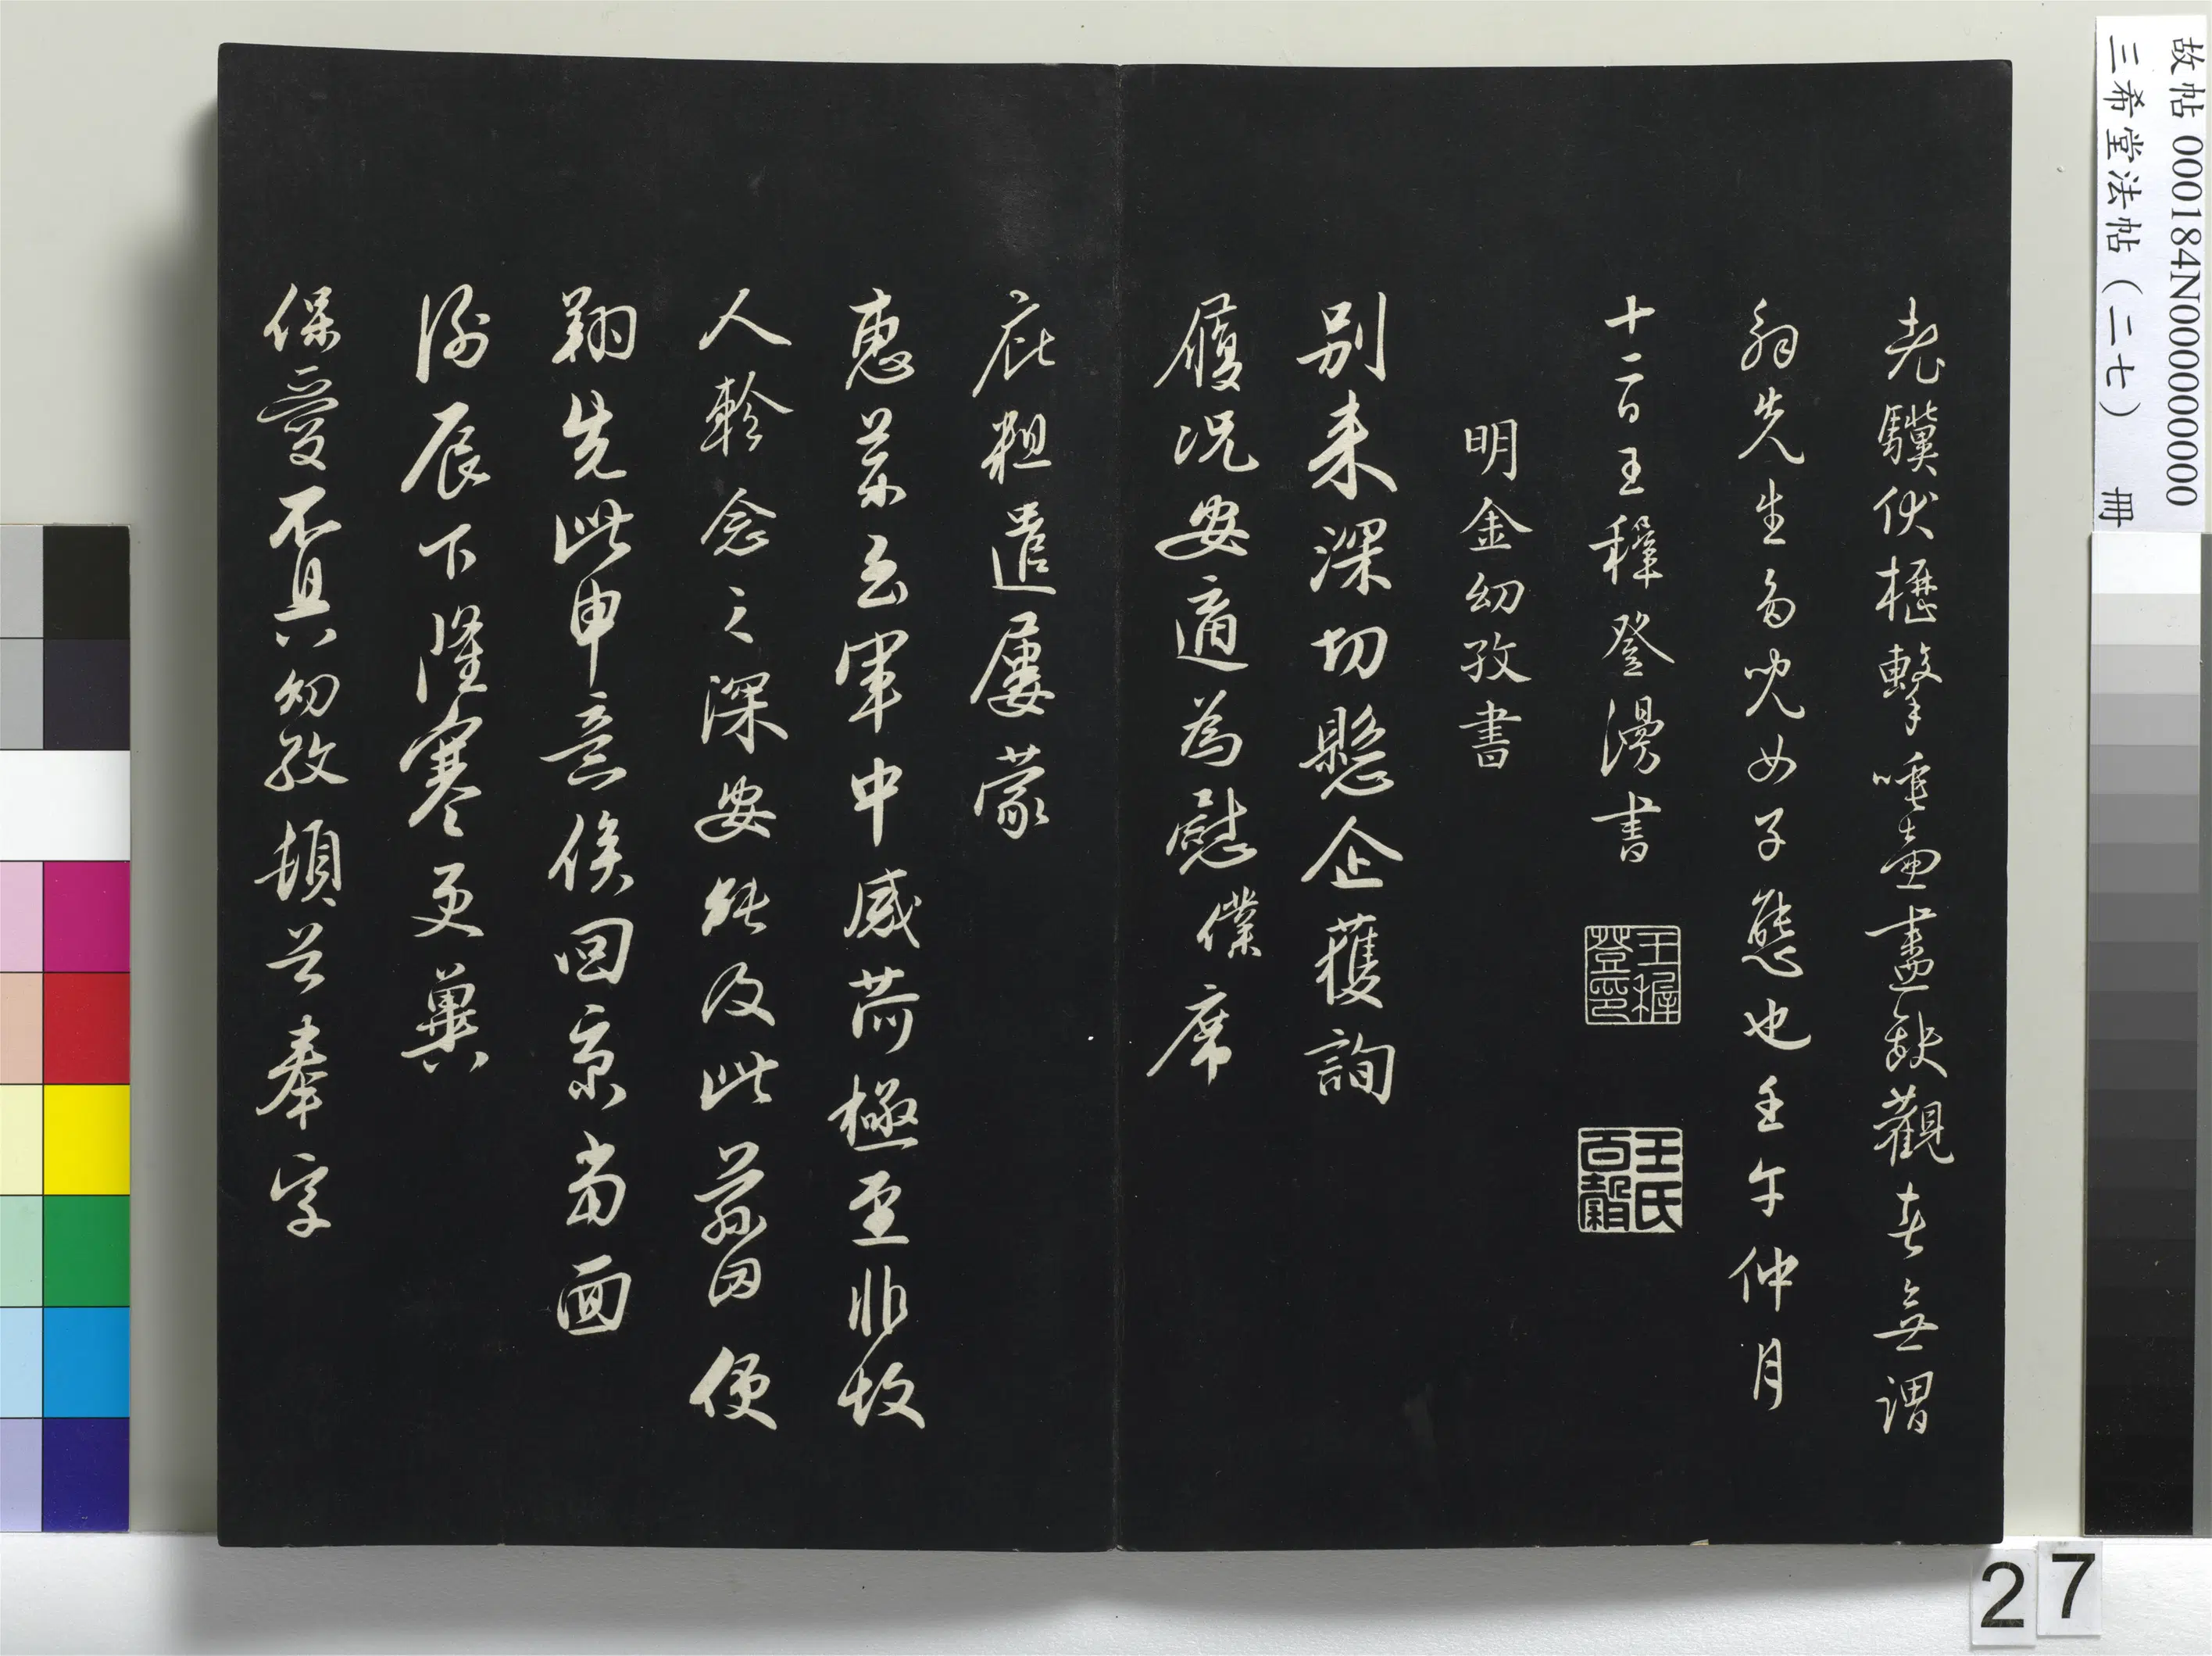 故帖 000184N000000000
三希堂法帖（二七） 冊
老驥伏櫪擊唾壺盡缺觀者無謂
翁先生為兒女子態也壬午仲月
十二日王穉登漫書
王穉登印
王氏百穀
明金幼孜書
別來深切懸企獲詢
履況安適為慰僕席
庇粗遣屢蒙
惠茶至軍中感荷極至非故
人軫念之深安能及此茲因便
翔先此申意俟回京當面
謝辰下隆寒更冀
保愛不具幼孜頓首奉字
27